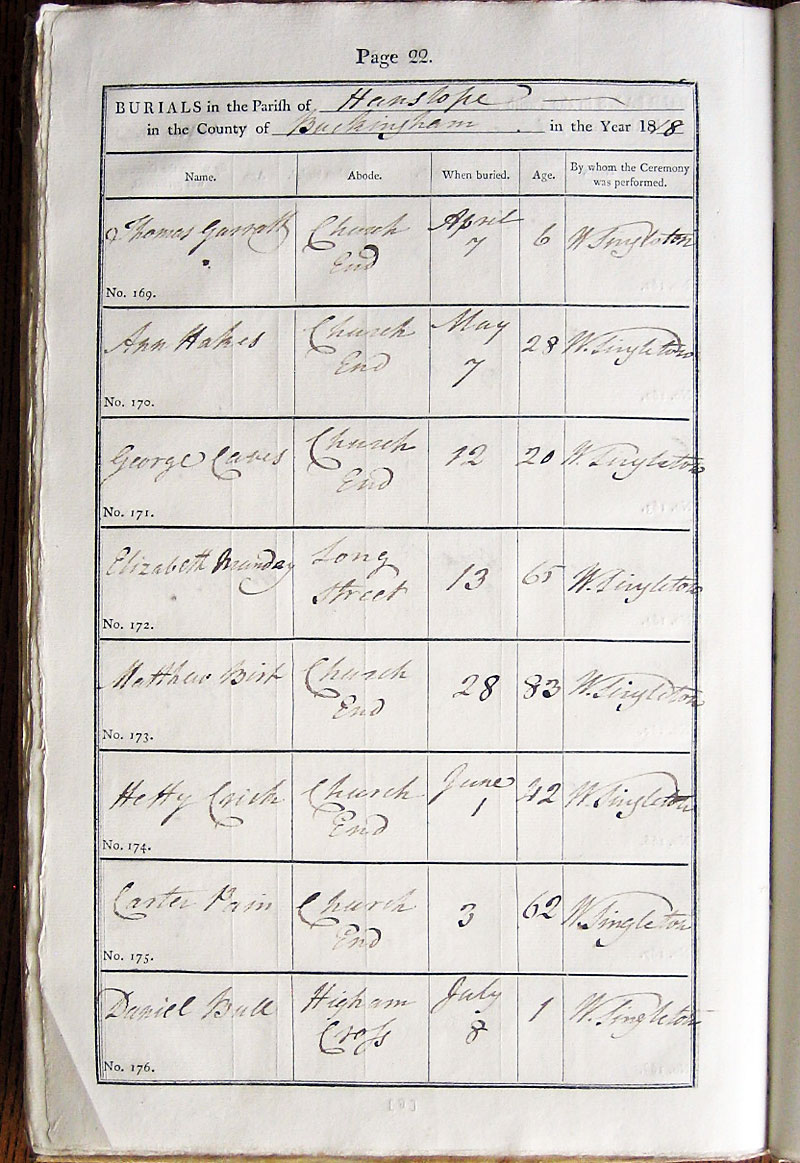 Page 22.
BURIALS in the Parish of Hanslope
in the County of Buckingham in the Year 1818
Name. Abode. When buried. Age. By whom the Ceremony was performed.
Thomas Garratt Church End April 7 6 W Singleton
No. 169.
Ann Hakes Church End May 7 28 W. Singleton
No. 170.
George Caves Church End 12 20 W. Singleton
No. 171.
Elizabeth Munday Long Street 13 65 W. Singleton
No. 172.
Matthew Birt Church End 28 83 W. Singleton
No. 173.
Hetty Crick Church End June 1 42 W. Singleton
No. 174.
Carter Pain Church End 3 62 W. Singleton
No. 175.
Daniel Bull Higham Cross July 8 1 W. Singleton
No. 176.